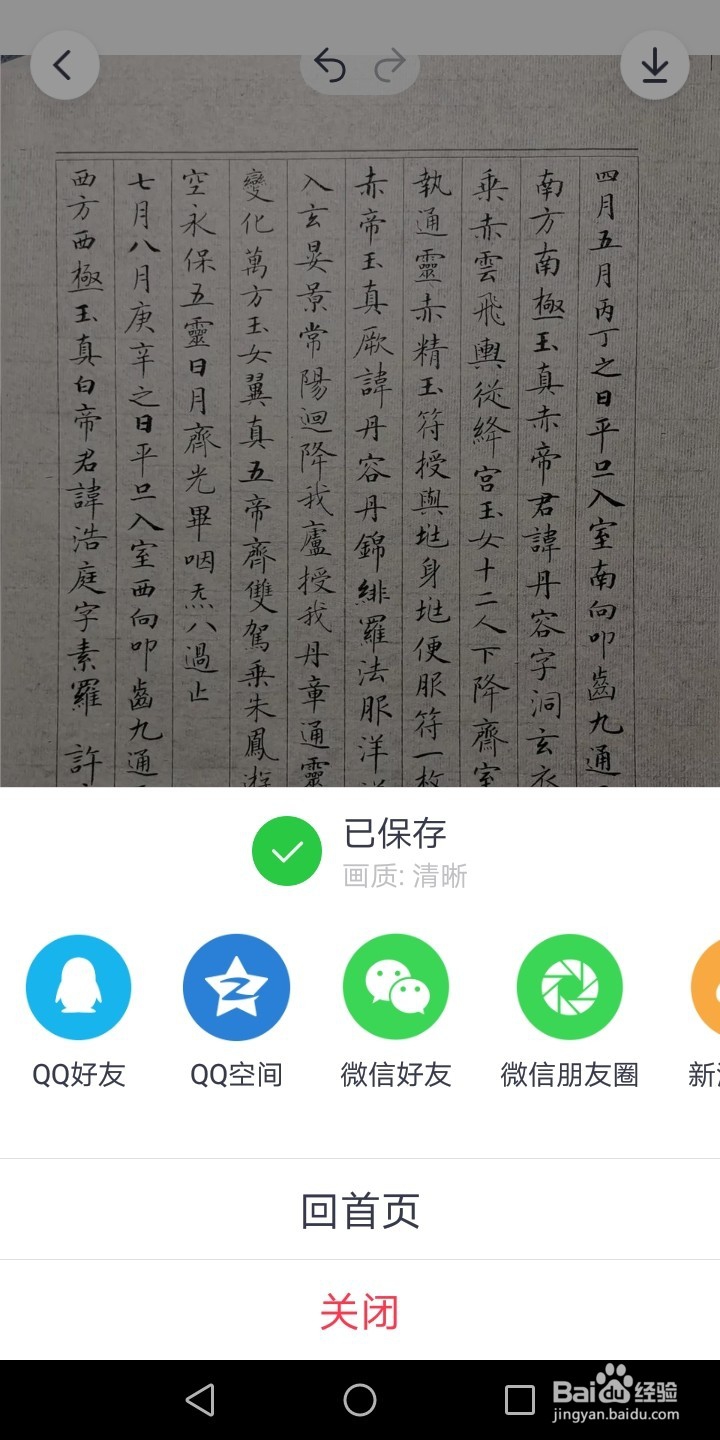 四月五月丙丁之日平旦入室南向叩齒九通
南方南極玉真赤帝君諱丹容字洞玄衣
乘赤雲飛輿從絳宮玉女十二人下降齋室
執通靈赤精玉符授與兆身兆便服符一枚
赤帝玉真厥諱丹容丹錦緋羅法服洋洋
入玄晃景常陽迴降我廬授我丹章通靈
變化萬方玉女翼真五帝齊雙駕乘朱鳳遊
空永保五靈日月齊光畢咽炁八過止
七月八月庚辛之日平旦入室西向叩齒九通
西方西極玉真白帝君諱浩庭字素羅 許
已保存
画质: 清晰
QQ好友
QQ空间
微信好友
微信朋友圈
新
回首页
关闭
Baidu经验
jingyan.baidu.com